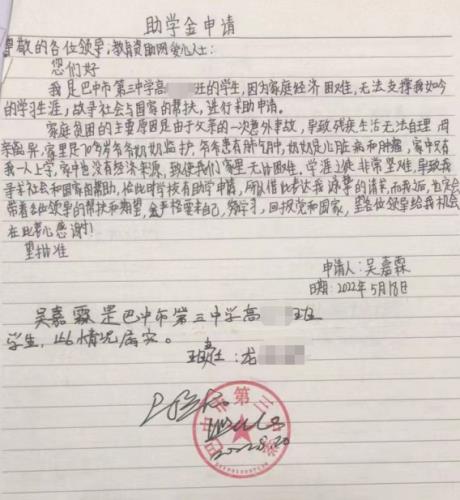 助学金申请
尊敬的各位领导,教育资助网爱心人士:
您们好
我是巴中市第三中学高 班的学生,因为家庭经济困难,无法支撑我如今
的学习生涯,故寻社会与国家的帮扶,进行求助申请。
家庭贫困的主要原因是由于父亲的一次意外事故,导致残疾生活无法自理,母
亲离异,家里是70岁爷爷奶奶监护,爷爷患有肺气肿,奶奶是心脏病和肿瘤,家中只有
我一人上学,家中也没有经济来源,致使我们家里无比困难,学涯上使非常坚难,导致我
寻求社会和国家的帮助,恰此时学校有助学申请,所以借此表达我 的请求,而我后, 会
带着各位领导的帮扶和期望,会严格要求自己,努力学习,回报党和国家,望各位领导给我机会
在此衷心感谢!
望批准
申请人:吴嘉霖
日期:2022年5月18日
吴嘉霖是巴中市第三中学高 班
学生,以上情况属实。
班主任:龙
巴中市第三中学